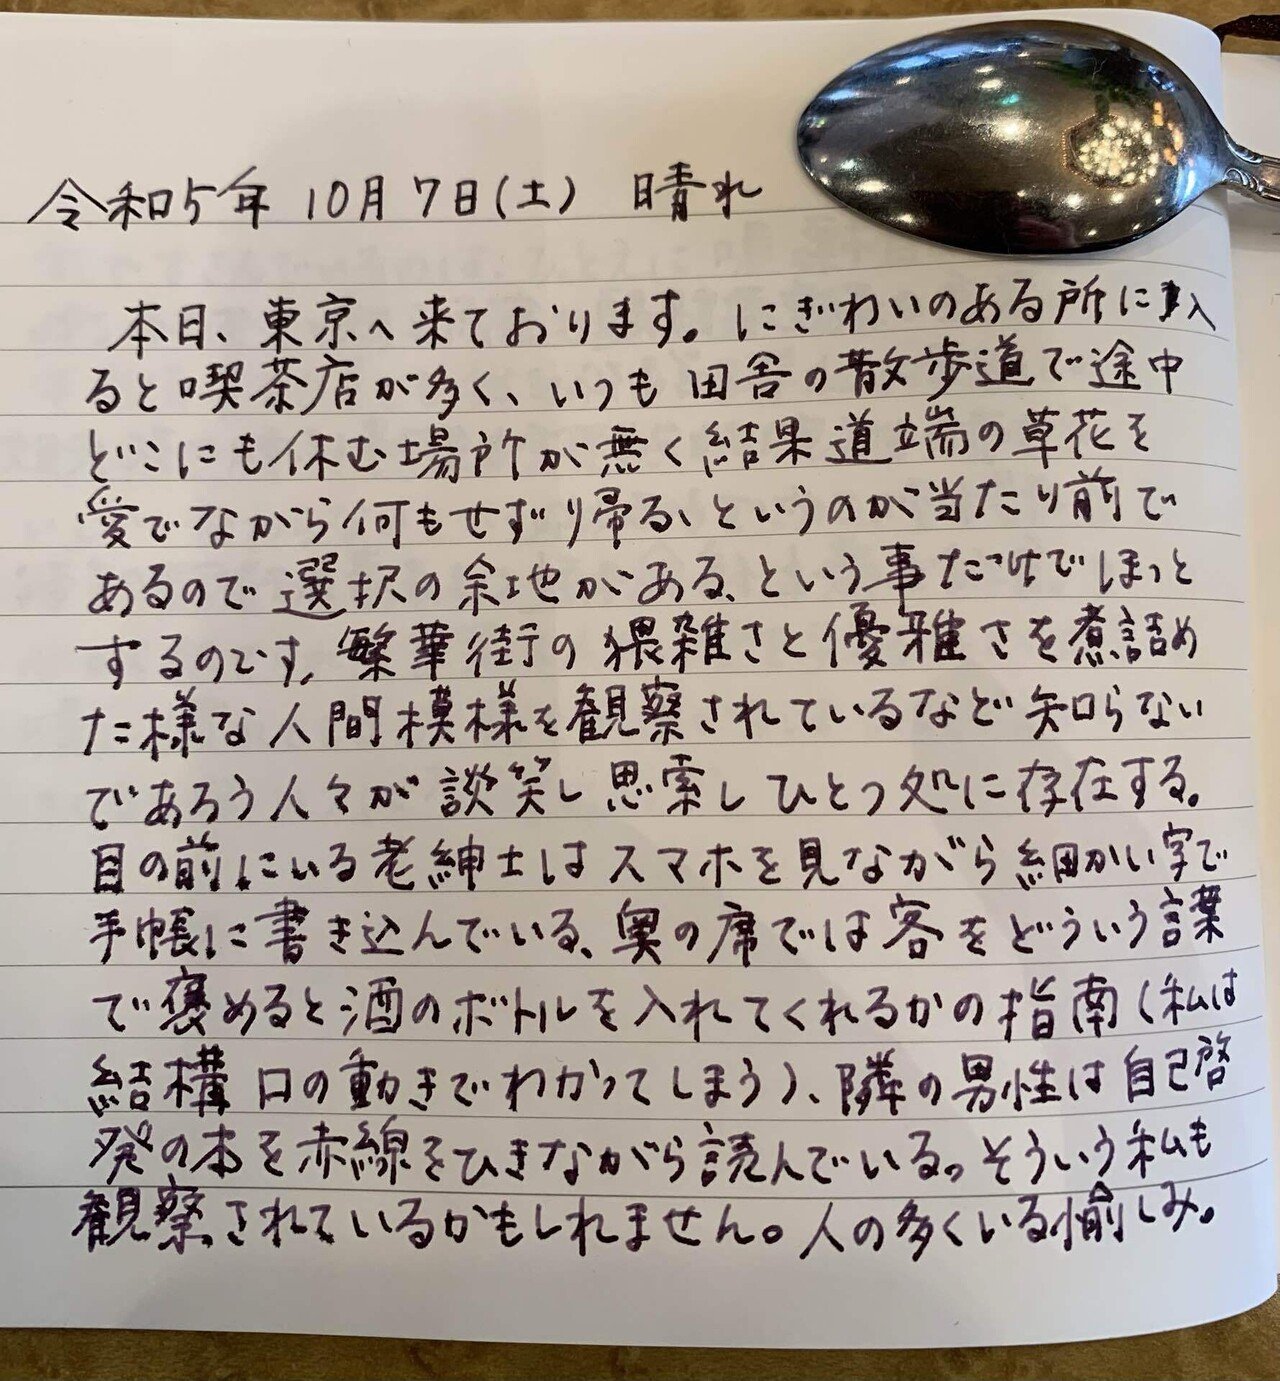 令和5年 10月7日(土) 晴れ
本日、東京へ来ております。にぎわいのある所に入
ると喫茶店が多く、いつも田舎の散歩道で途中
どこにも休む場所が無く結果道端の草花を
愛でながら何もせずり帰る、というのが当たり前で
あるので選択の余地がある、という事だけでほっと
するのです。繁華街の猥雑さと優雅さを煮詰め
た様な人間模様を観察されているなど知らない
であろう人々が談笑し思索しひとつ処に存在する。
目の前にいる老紳士はスマホを見ながら細かい字で
手帳に書き込んでいる、奥の席では客をどういう言葉
で褒めると酒のボトルを入れてくれるかの指南(私は
結構口の動きでわかってしまう)、隣の男性は自己啓
発の本を赤線をひきながら読んでいる。そういう私も
観察されているかもしれません。人の多くいる愉しみ。